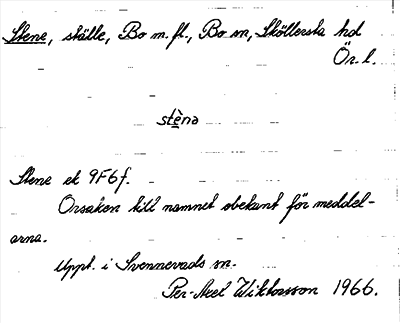 Stene, ställe, Bo m. fl., Bo sn, Sköllersta hd
Ör. l.
stè̱nə
Stene ek 9F6f.
Orsaken till namnet obekant för meddel-
arna.
Uppt. i Svennevads sn.
Per-Axel Wiktorsson 1966.